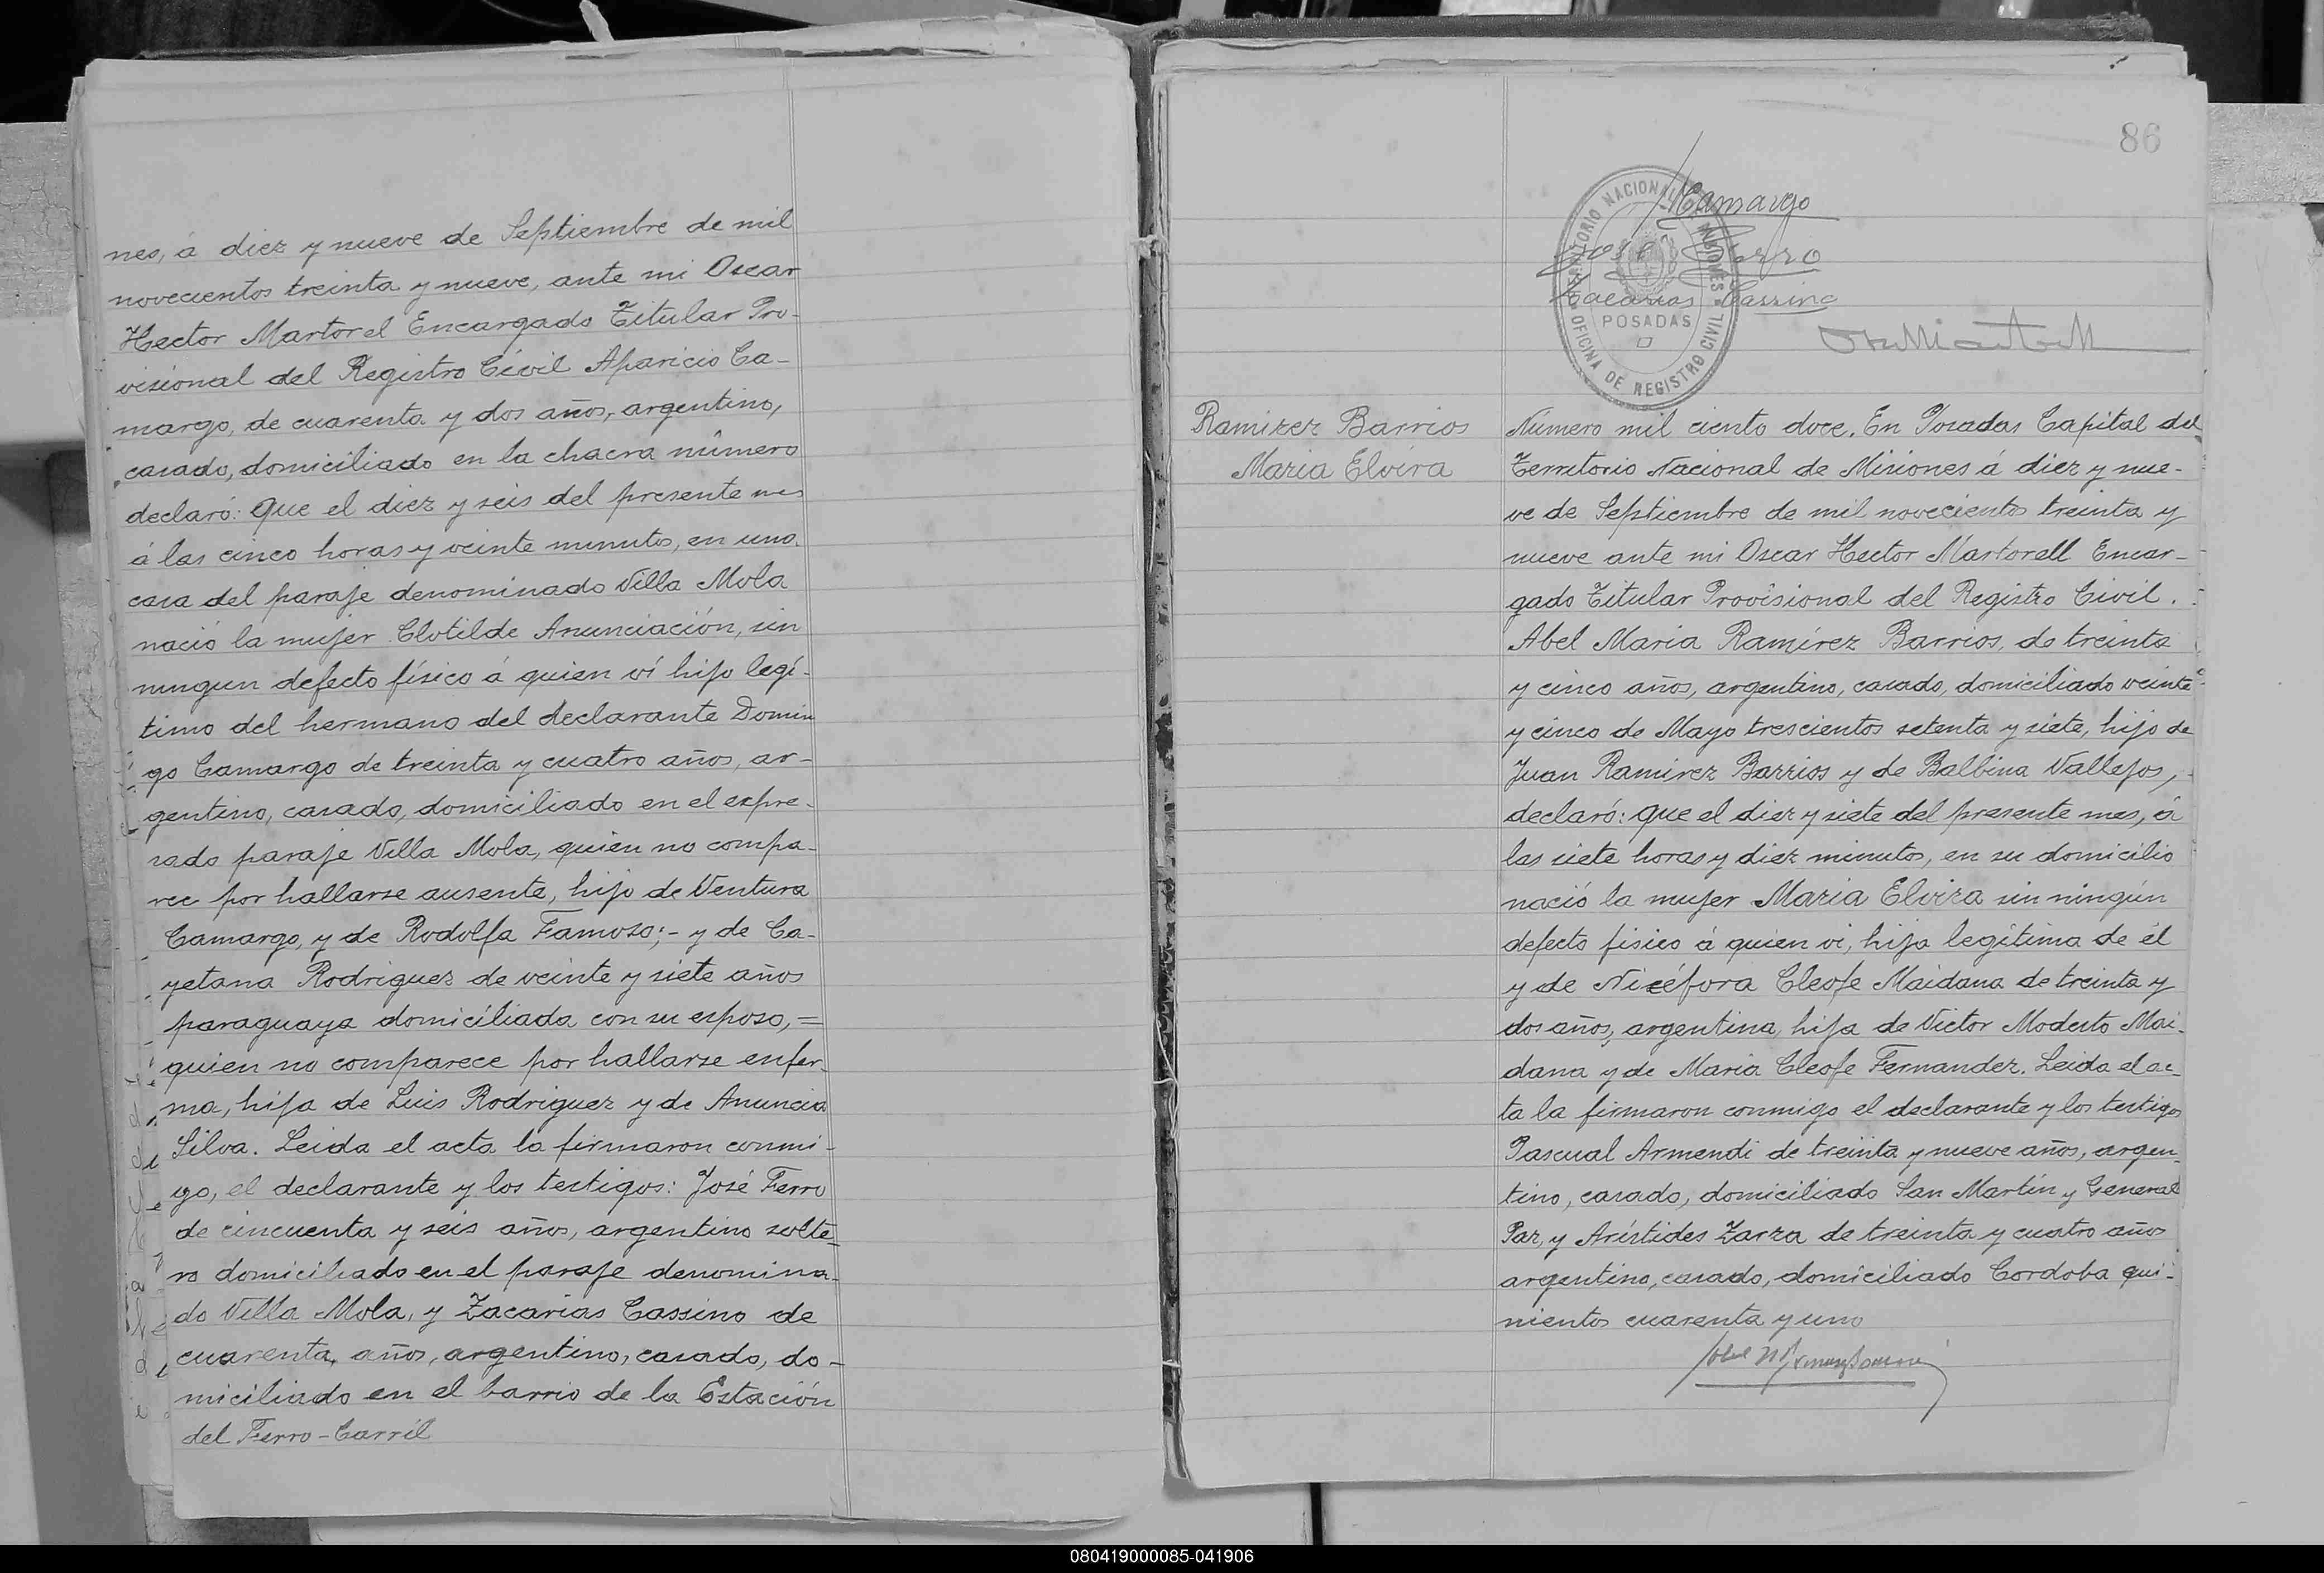 nes, á diez y nueve de Septiembre de mil
novecientos treinta y nueve, ante mi Oscar
Hector Martorel Encargado Titular Pro-
visional del Registro Civil Aparicio Ca-
margo, de cuarenta y dos años, argentino,
casado, domiciliado en la chacra número
declaró: Que el diez y seis del presente mes
á las cinco horas y veinte minutos, en una
casa del paraje denominado Villa Mola
nació la mujer Clotilde Anunciación, sin
ningun defecto físico á quien ví hijo legí-
timo del hermano del declarante Domin
go Camargo de treinta y cuatro años, ar-
gentino, casado, domiciliado en el expre-
sado paraje Villa Mola, quien no compa-
rec por hallarse ausente, hijo de Ventura
Camargo, y de Rodolfa Famoso;- y de Ca-
yetana Rodriguez de veinte y siete años
paraguaya domiciliada con su esposo,=
quien no comparece por hallarse enfer-
ma, hija de Luis Rodriguez y de Anuncia
Silva. Leida el acta la firmaron conmi-
go, el declarante y los testigos: José Ferro
de cincuenta y seis años, argentino solte-
ro domiciliado en el paraje denomina-
do Villa Mola, y Zacarias Cassino de
cuarenta, años, argentino, casado, do-
miciliado en el barrio de la Estación
del Ferro-Carríl
86
Camargo
José Ferro
Zacarias Cassino
TERRITORIO NACIONAL MISIONES
POSADAS
OFICINA DE REGISTRO CIVIL
Ramirez Barrios
Maria Elvira
Número mil ciento doce. En Posadas Capital del
Territorio Nacional de Misiones á diez y nue-
ve de Septiembre de mil novecientos treinta y
nueve ante mi Oscar Hector Martorell Encar-
gado Titular Provisional del Registro Civil.
Abel Maria Ramírez Barrios, de treinta
y cinco años, argentino, casado, domiciliado veinte
y cinco de Mayo trescientos setenta y siete, hijo de
Juan Ramirez Barrios y de Balbina Vallejos,
declaró: Que el diez y siete del presente mes, á
las siete horas y diez minutos, en su domicilio
nació la mujer Maria Elvira sin ningún
defecto fisico á quien vi, hija legítima de él
y de Nicéfora Cleofe Maidana de treinta y
dos años, argentina, hija de Victor Modesto Mai-
dana y de Maria Cleofe Fernandez. Leida el ac-
ta la firmaron conmigo el declarante y los testigos
Pascual Armendi de treinta y nueve años, argen-
tino, casado, domiciliado San Martín y General
Paz, y Arístides Zarza de treinta y cuatro años
argentino, casado, domiciliado Cordoba qui-
nientos cuarenta y uno
080419000085-041906